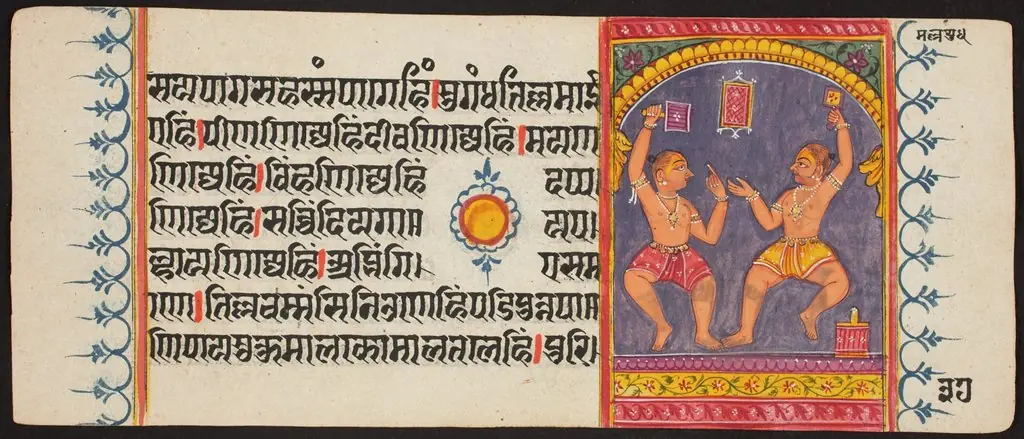 सयपागसहस्सपागेहिं।सुगंधतिल्लमाइ
एहिं।पीणणिज्जेहिंदीवणिज्जेहिं।मयण
णिज्जेहिं।विंहणिज्जेहिं दप्प
णिज्जेहिं।सव्विंदियगा यप
ल्हायणिज्जेहिं।अब्भंगि एसमा
णे।तिल्लचम्मंसिनिउणेहिंपडिपुन्नपा
णिपायसुकुमालकोमलतलेहिं।पुरि
मल्लयुध
३७